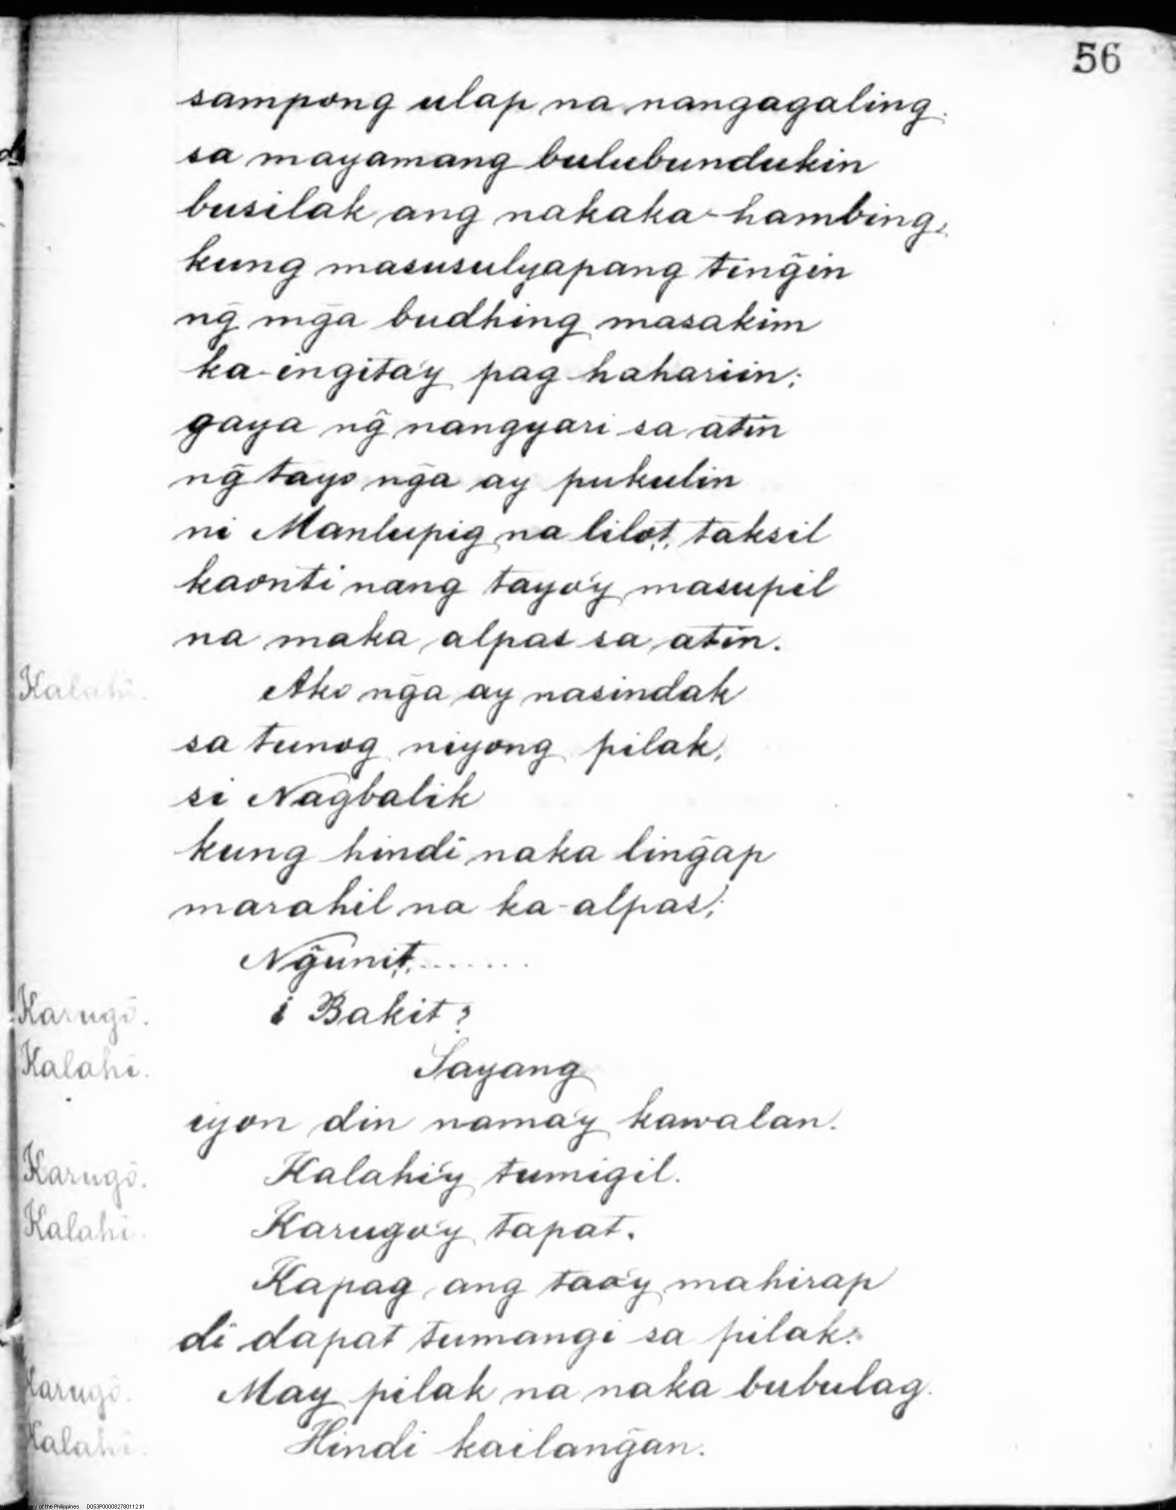 56
sampong ulap na nangagaling
sa mayamang bulubundukin
busilak ang nakaka-hambing,
kung masusulyapang ting̃in
ng̃ mg̃a budhing masakim
ka-ingita'y pag hahariin;
gaya ng̃ nangyari sa atin
ng̃ tayo ng̃a ay pukulin
ni Manlupig na lilo't, taksil
kaonti nang tayo'y masupil
na maka alpas sa atin.
Kalahi. Ako ng̃a ay nasindak
sa tunog niyong pilak,
si Nagbalik
kung hindi naka ling̃ap
marahil na ka-alpas;
Ng̃uni't,.......
Karugô. ¿Bakit?
Kalahi. Sayang
iyon din nama'y kawalan.
Karugô. Kalahi'y tumigil.
Kalahi. Karugo'y tapat.
Kapag ang tao'y mahirap
di dapat tumangi sa pilak.
Karugô. May pilak na naka bubulag.
Kalahi. Hindi kailang̃an.
of the Philippines